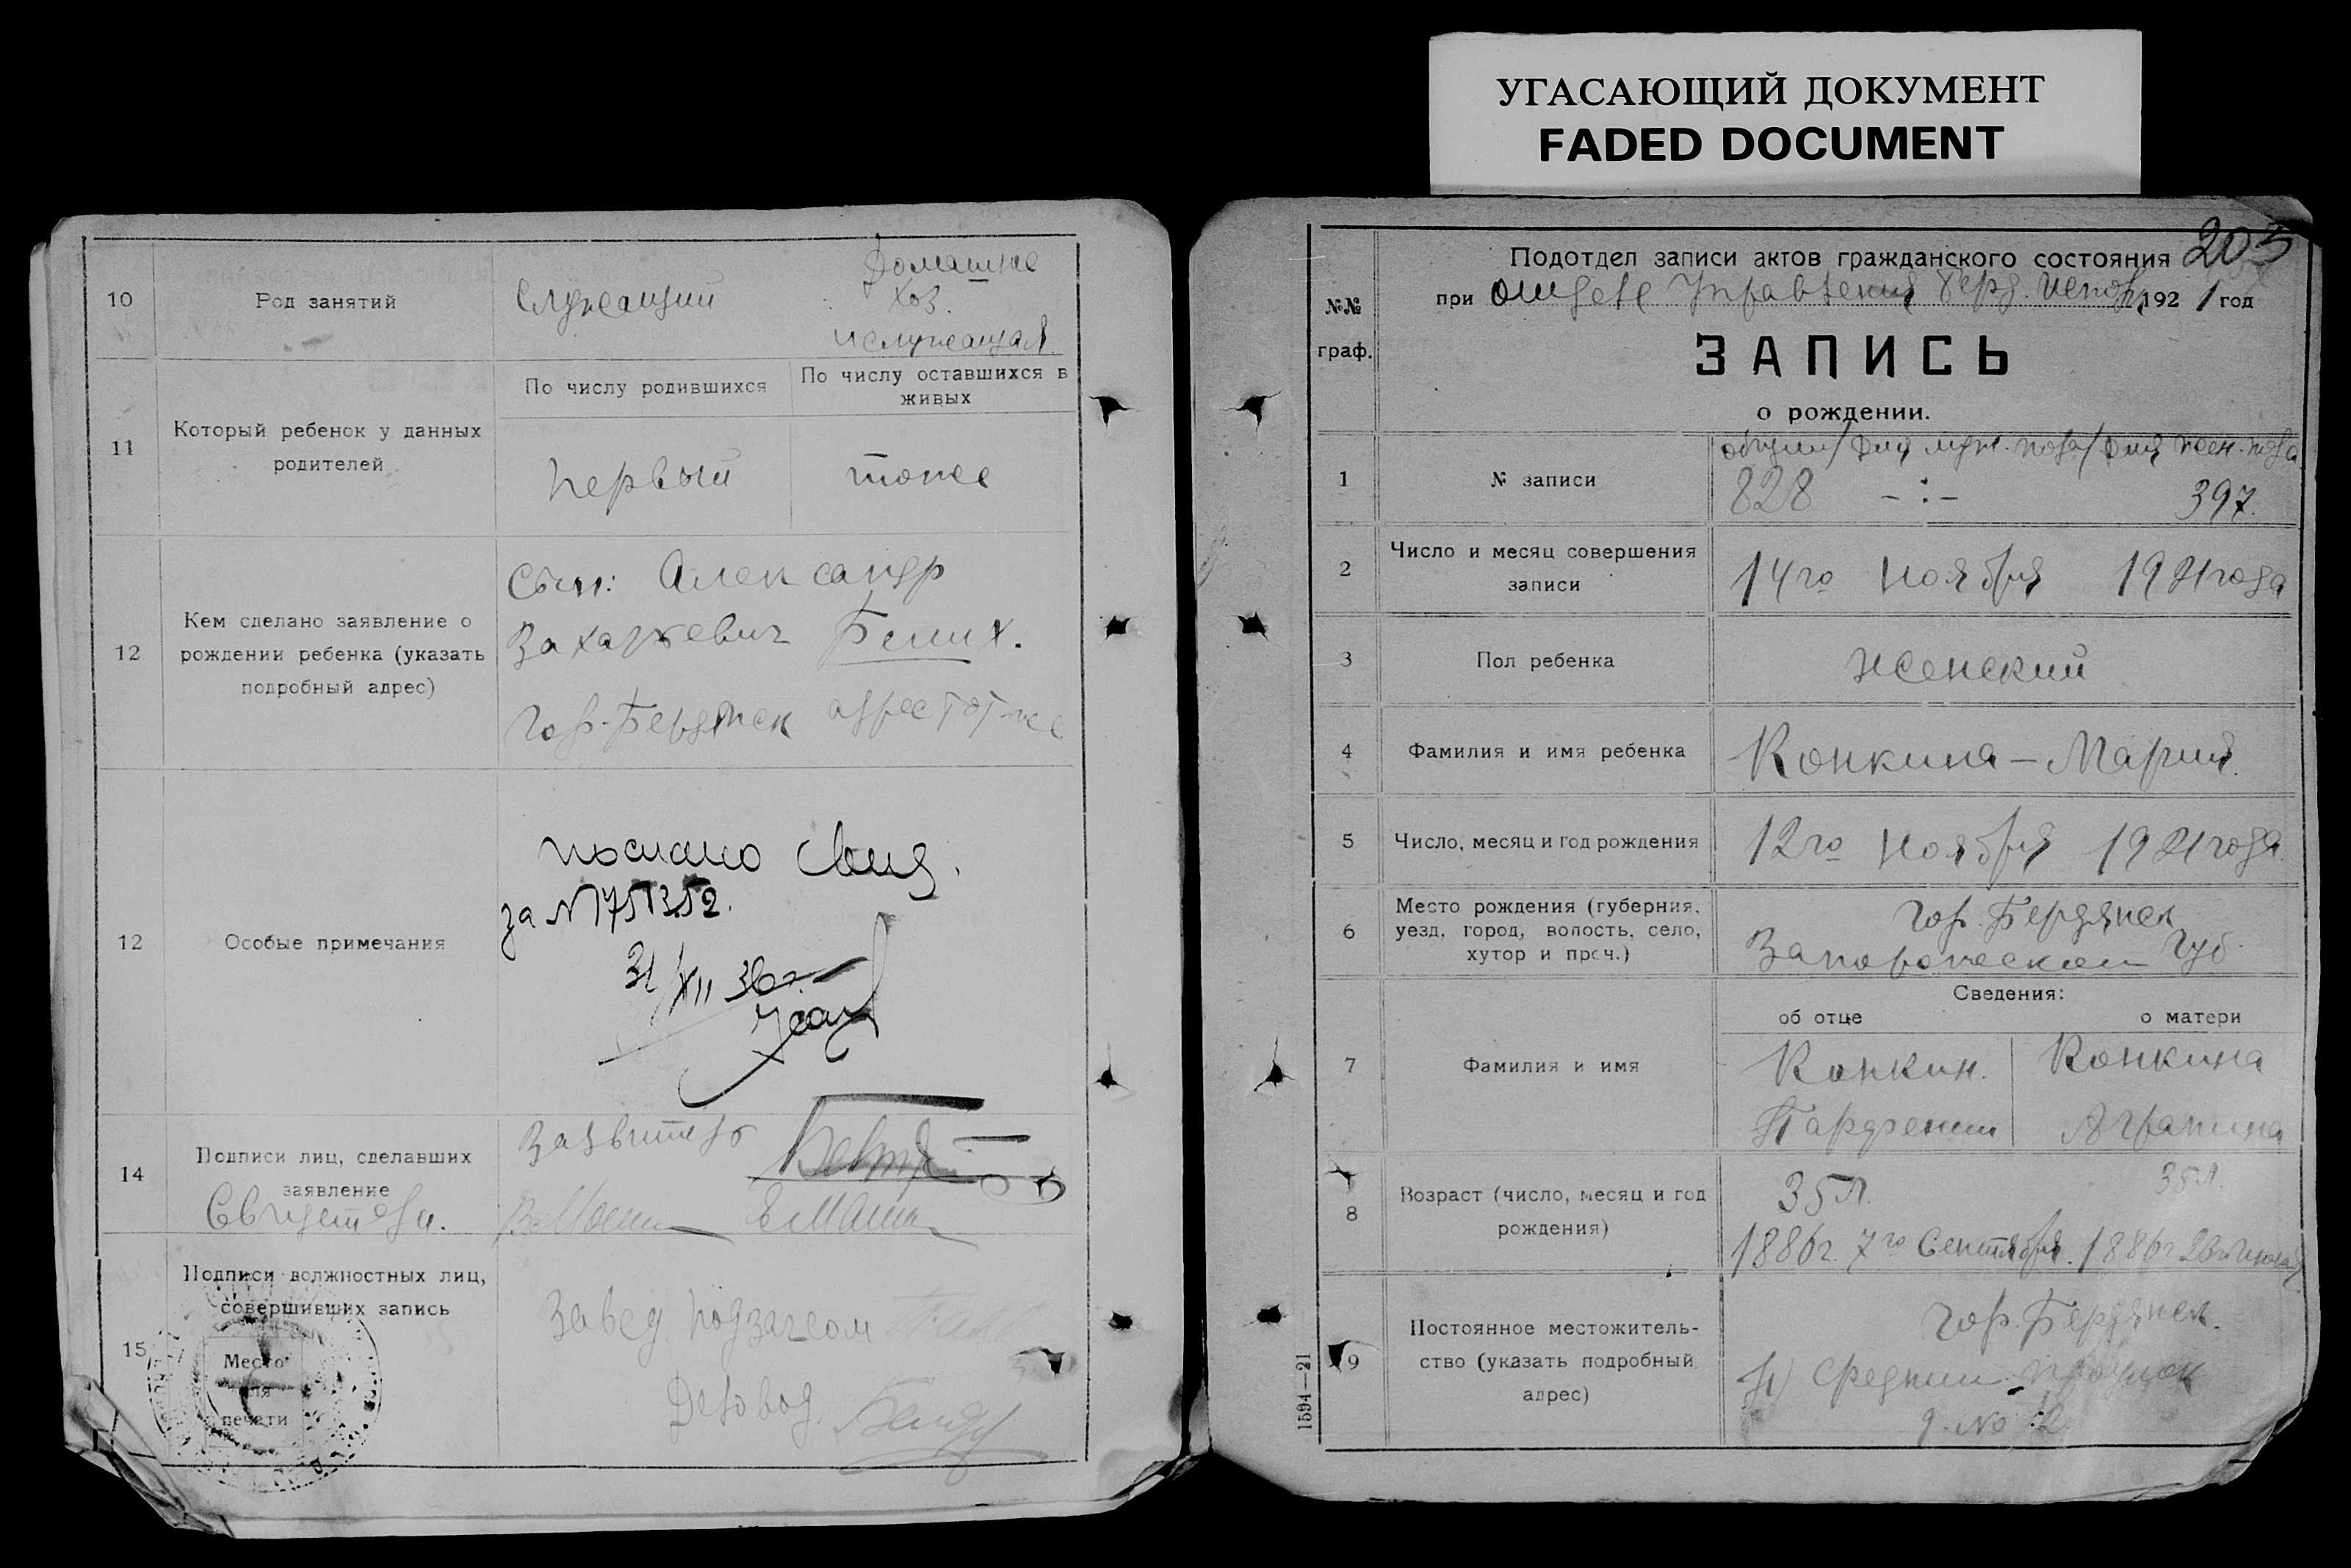 УГАСАЮЩИЙ ДОКУМЕНТ
FADED DOCUMENT
10
Род занятий
Служащий
Домашнее
хоз.
и служащая.
11
Который ребенок у данных
родителей
По числу родившихся
По числу оставшихся в
живых
Первый
тоже
12
Кем сделано заявление о
рождении ребенка (указать
подробный адрес)
Сын: Александр
Захарьевич
Гор. Бердянск адрес тот-же
12
Особые примечания
послано свид.
за №
31/XII 36г.
14
Подписи лиц, сделавших
заявление
Свидетели.
Заявитель
15
Подписи должностных лиц,
совершивших запись
Место
для
печати
Завед. подзагсом
Деловод.
203
Подотдел записи актов гражданского состояния
№№
граф.
при отделе Управления Берд. Испол. 1921 год
ЗАПИСЬ
о рождении.
1
№ записи
общий/для муж. пола/для жен. пола
828 -:- 397.
2
Число и месяц совершения
записи
14го Ноября 1921 года
3
Пол ребенка
женский
4
Фамилия и имя ребенка
Конкина – Мария.
5
Число, месяц и год рождения
12го Ноября 1921 года.
6
Место рождения (губерния,
уезд, город, волость, село,
хутор и проч.)
Гор. Бердянск
Запорожской Губ.
Сведения:
об отце
о матери
7
Фамилия и имя
Конкин.
Парфений
Конкина
Агрипина
8
Возраст (число, месяц и год
рождения)
35 л.
35 л.
1886г. 7го Сентября.
1886г. 23го
9
Постоянное местожитель-
ство (указать подробный
адрес)
Гор. Бердянск.
Средний
д. №
1594—21